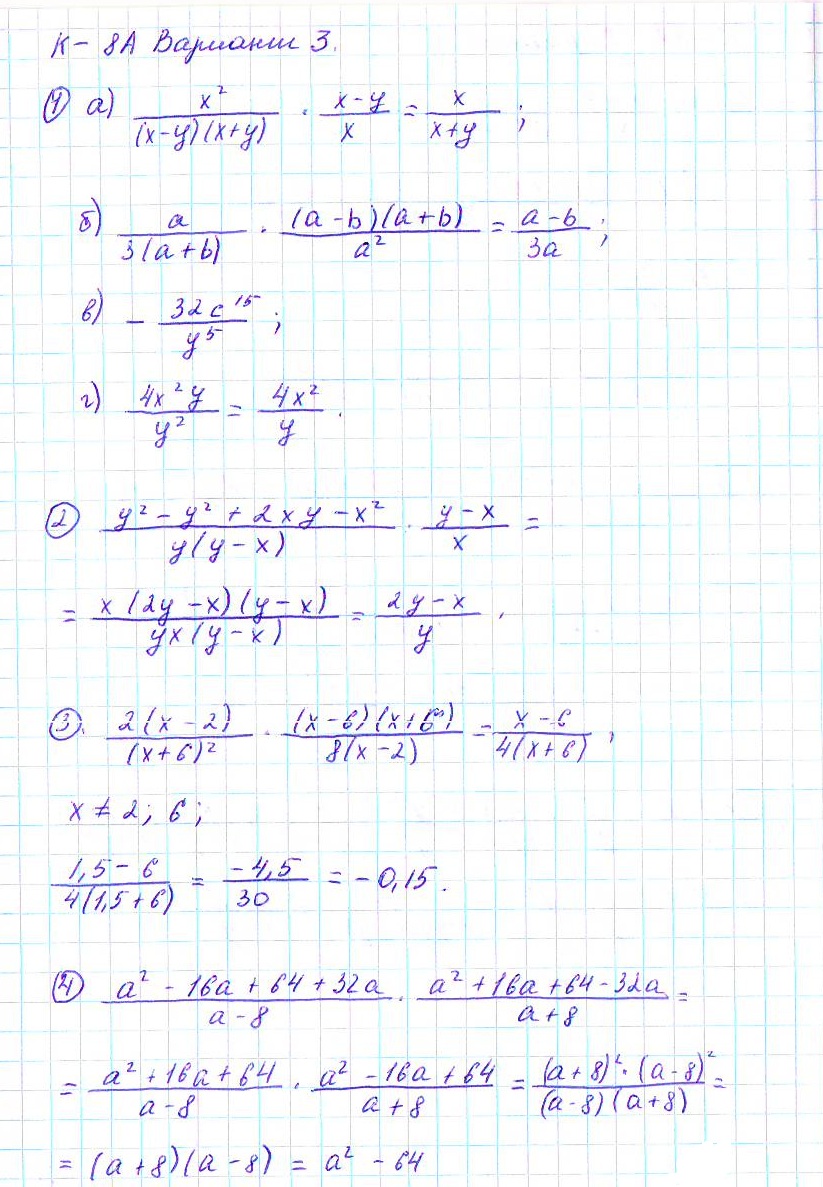 К - 8А Вариант 3.
① а) x²/((x-y)(x+y)) · (x-y)/x = x/(x+y) ;
б) a/(3(a+b)) · ((a-b)(a+b))/a² = (a-b)/(3a) ;
в) - 32c¹⁵/y⁵ ;
г) 4x²y/y² = 4x²/y .
② (y² - y² + 2xy - x²)/(y(y-x)) · (y-x)/x =
= (x(2y-x)(y-x))/(yx(y-x)) = (2y-x)/y .
③. (2(x-2))/((x+6)²) · ((x-6)(x+6))/(8(x-2)) = (x-6)/(4(x+6)) ,
x ≠ 2; 6;
(1,5-6)/(4(1,5+6)) = -4,5/30 = -0,15.
④ (a² - 16a + 64 + 32a)/(a-8) · (a² + 16a + 64 - 32a)/(a+8) =
= (a² + 16a + 64)/(a-8) · (a² - 16a + 64)/(a+8) = ((a+8)² · (a-8)²)/((a-8)(a+8)) =
= (a+8)(a-8) = a² - 64